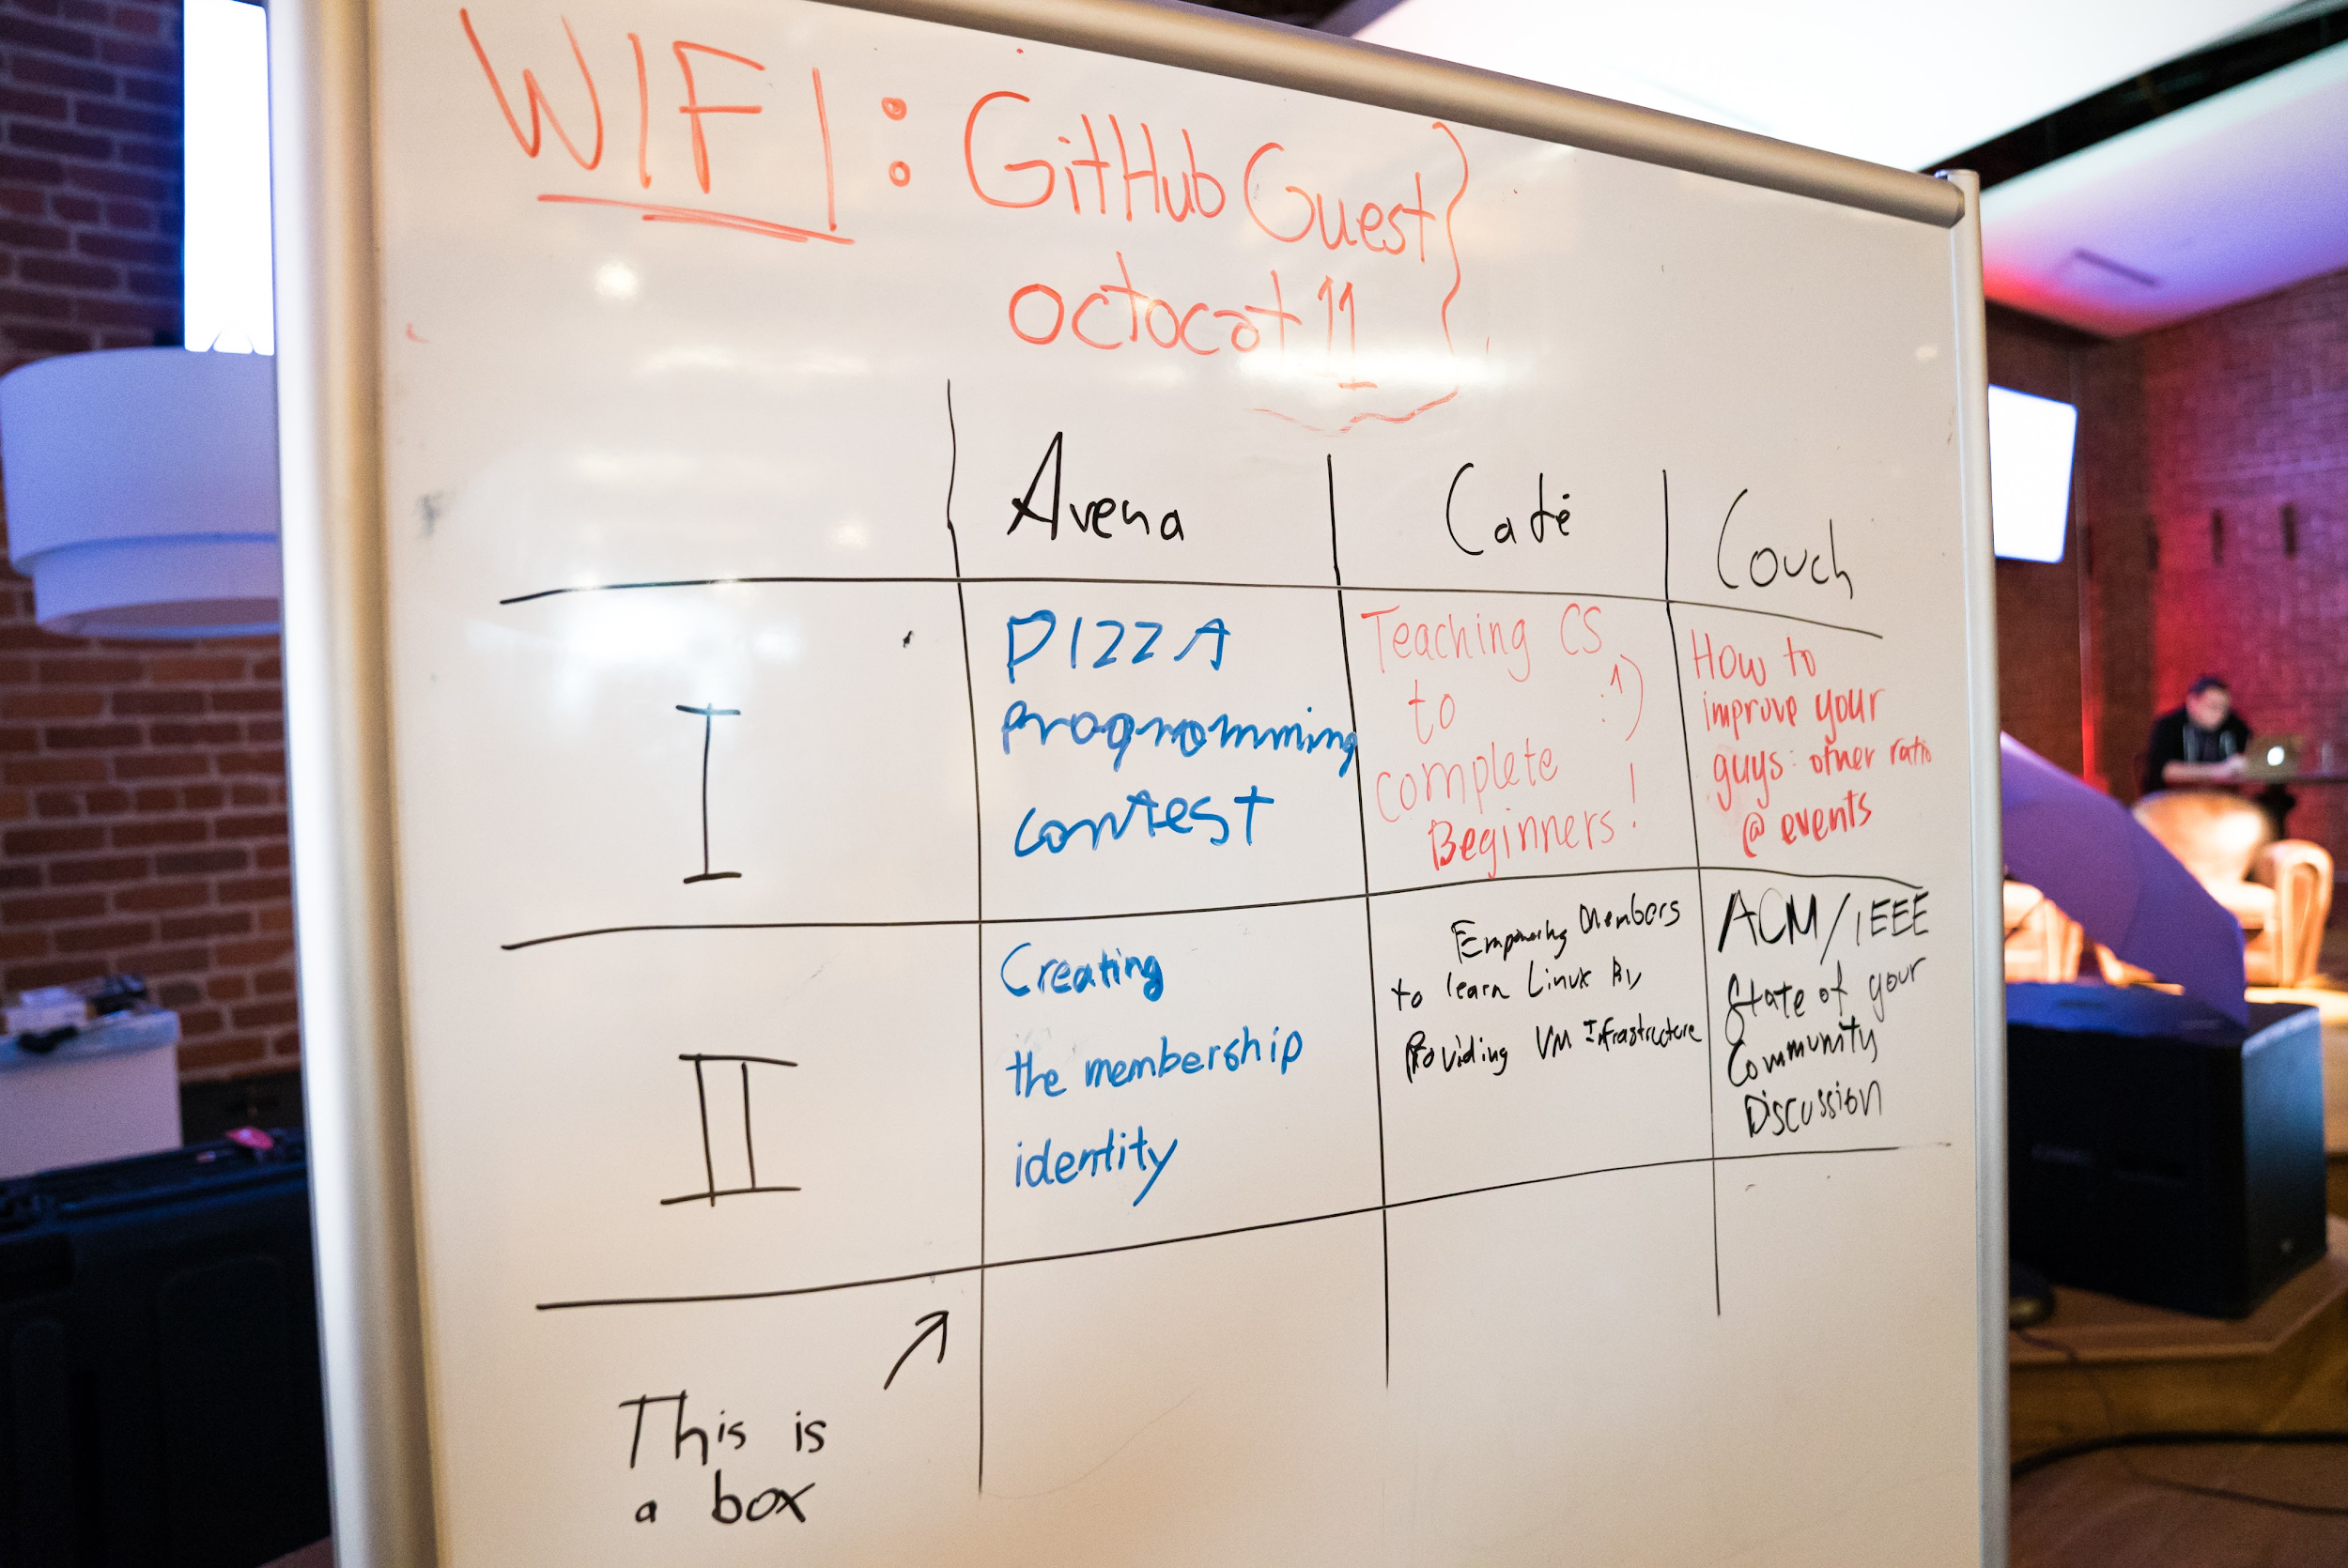 WIFI: GitHub Guest
octocat11
Arena
Café
Couch
I
PIZZA
Programming
contest
Teaching CS
to :^)
complete
Beginners!
How to
improve your
guys: other ratio
@ events
II
Creating
the membership
identity
Empowering Members
to learn Linux By
Providing VM Infrastructure
ACM/IEEE
State of your
Community
Discussion
This is
a box